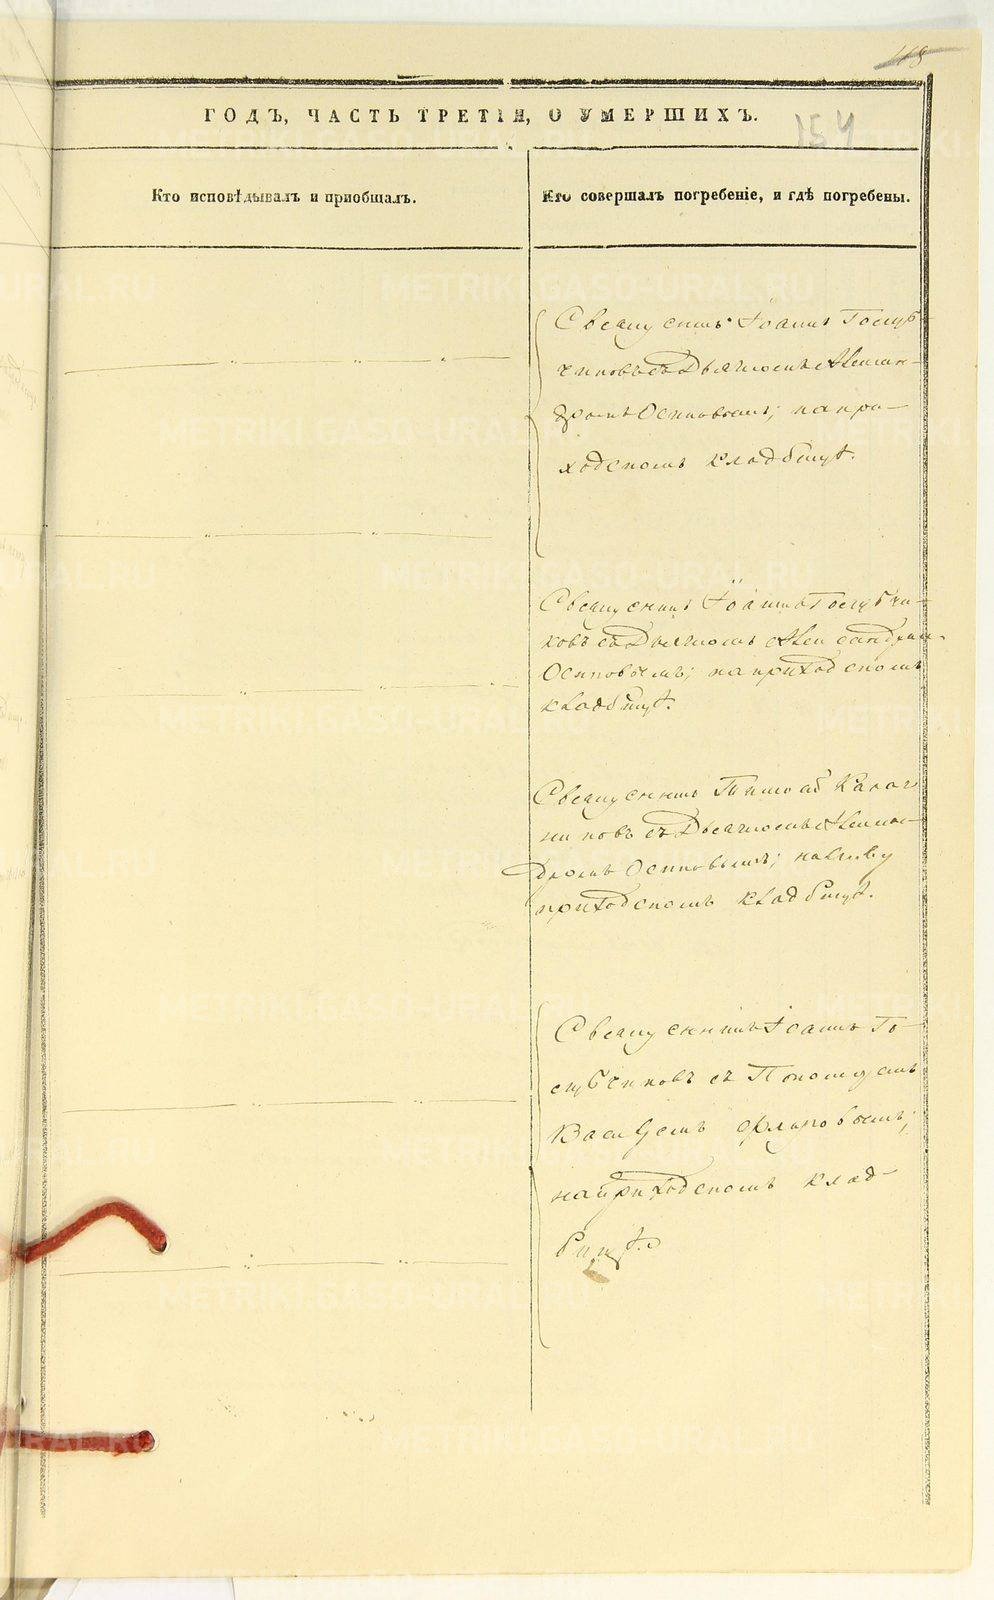 118
ГОДЪ, ЧАСТЬ ТРЕТІЯ, О УМЕРШИХЪ.
154
Кто исповѣдывалъ и пріобщалъ.
Кто совершалъ погребеніе, и гдѣ погребены.
Священникъ Іоаннъ Голуб-
чиковъ съ Дьячкомъ Алексан-
дромъ Осиповымъ; на при-
ходскомъ кладбищѣ.
Священникъ Іоаннъ Голубчи-
ковъ съ Дьячкомъ Александром
Осиповымъ; на приходскомъ
кладбищѣ.
Священникъ
съ Дьячкомъ Алексан-
дромъ Осиповымъ;
приходскомъ кладбищѣ.
Священникъ Іоаннъ Го-
лубчиковъ съ Пономаремъ
на приходскомъ клад-
бищѣ.
METRIKI.GASO-URAL.RU